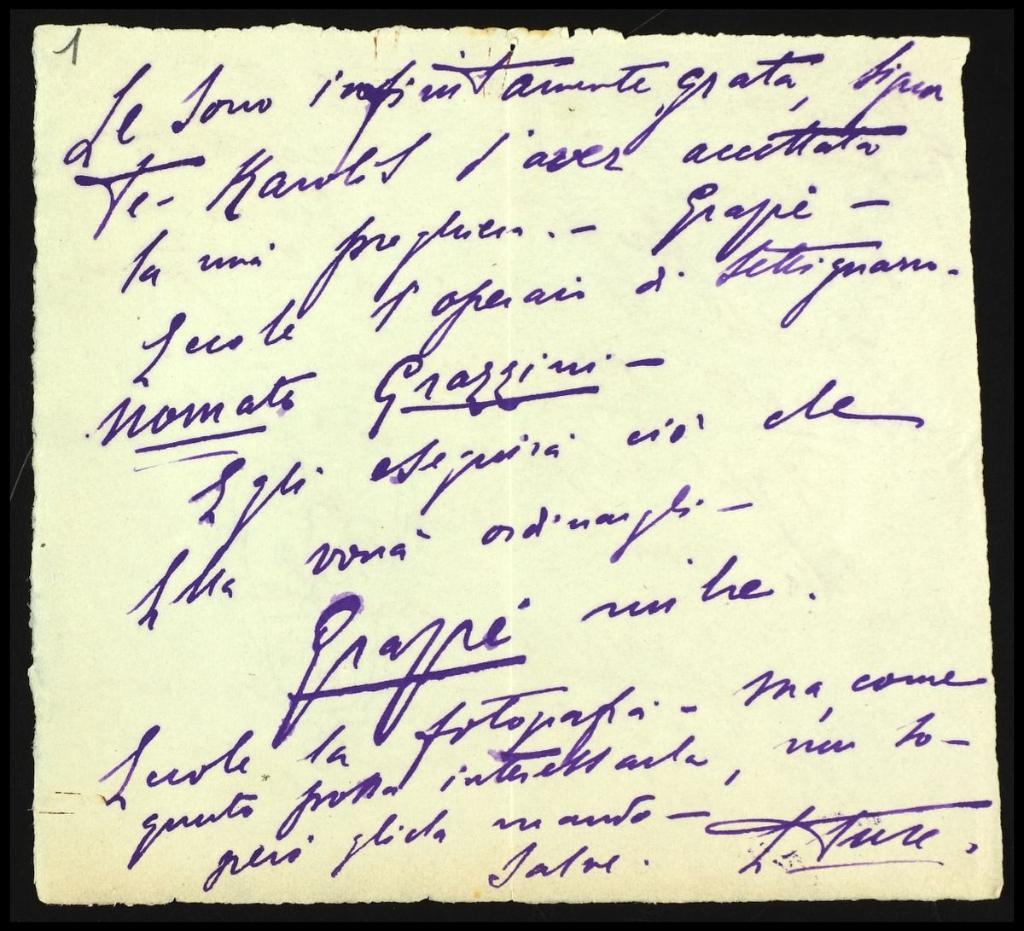 1
Le sono infinitamente grata, signor
De Karolis d'aver accettata
la mia preghiera. - Grazie -
Eccole l'operaio di Settignano.
nomato Grazzini -
Egli eseguirà ciò che
Ella vorrà ordinargli -
Grazie mille.
Eccole la fotografia - ma, come
questo possa interessarla, non so -
però gliela mando -
Salve. E. Duse.